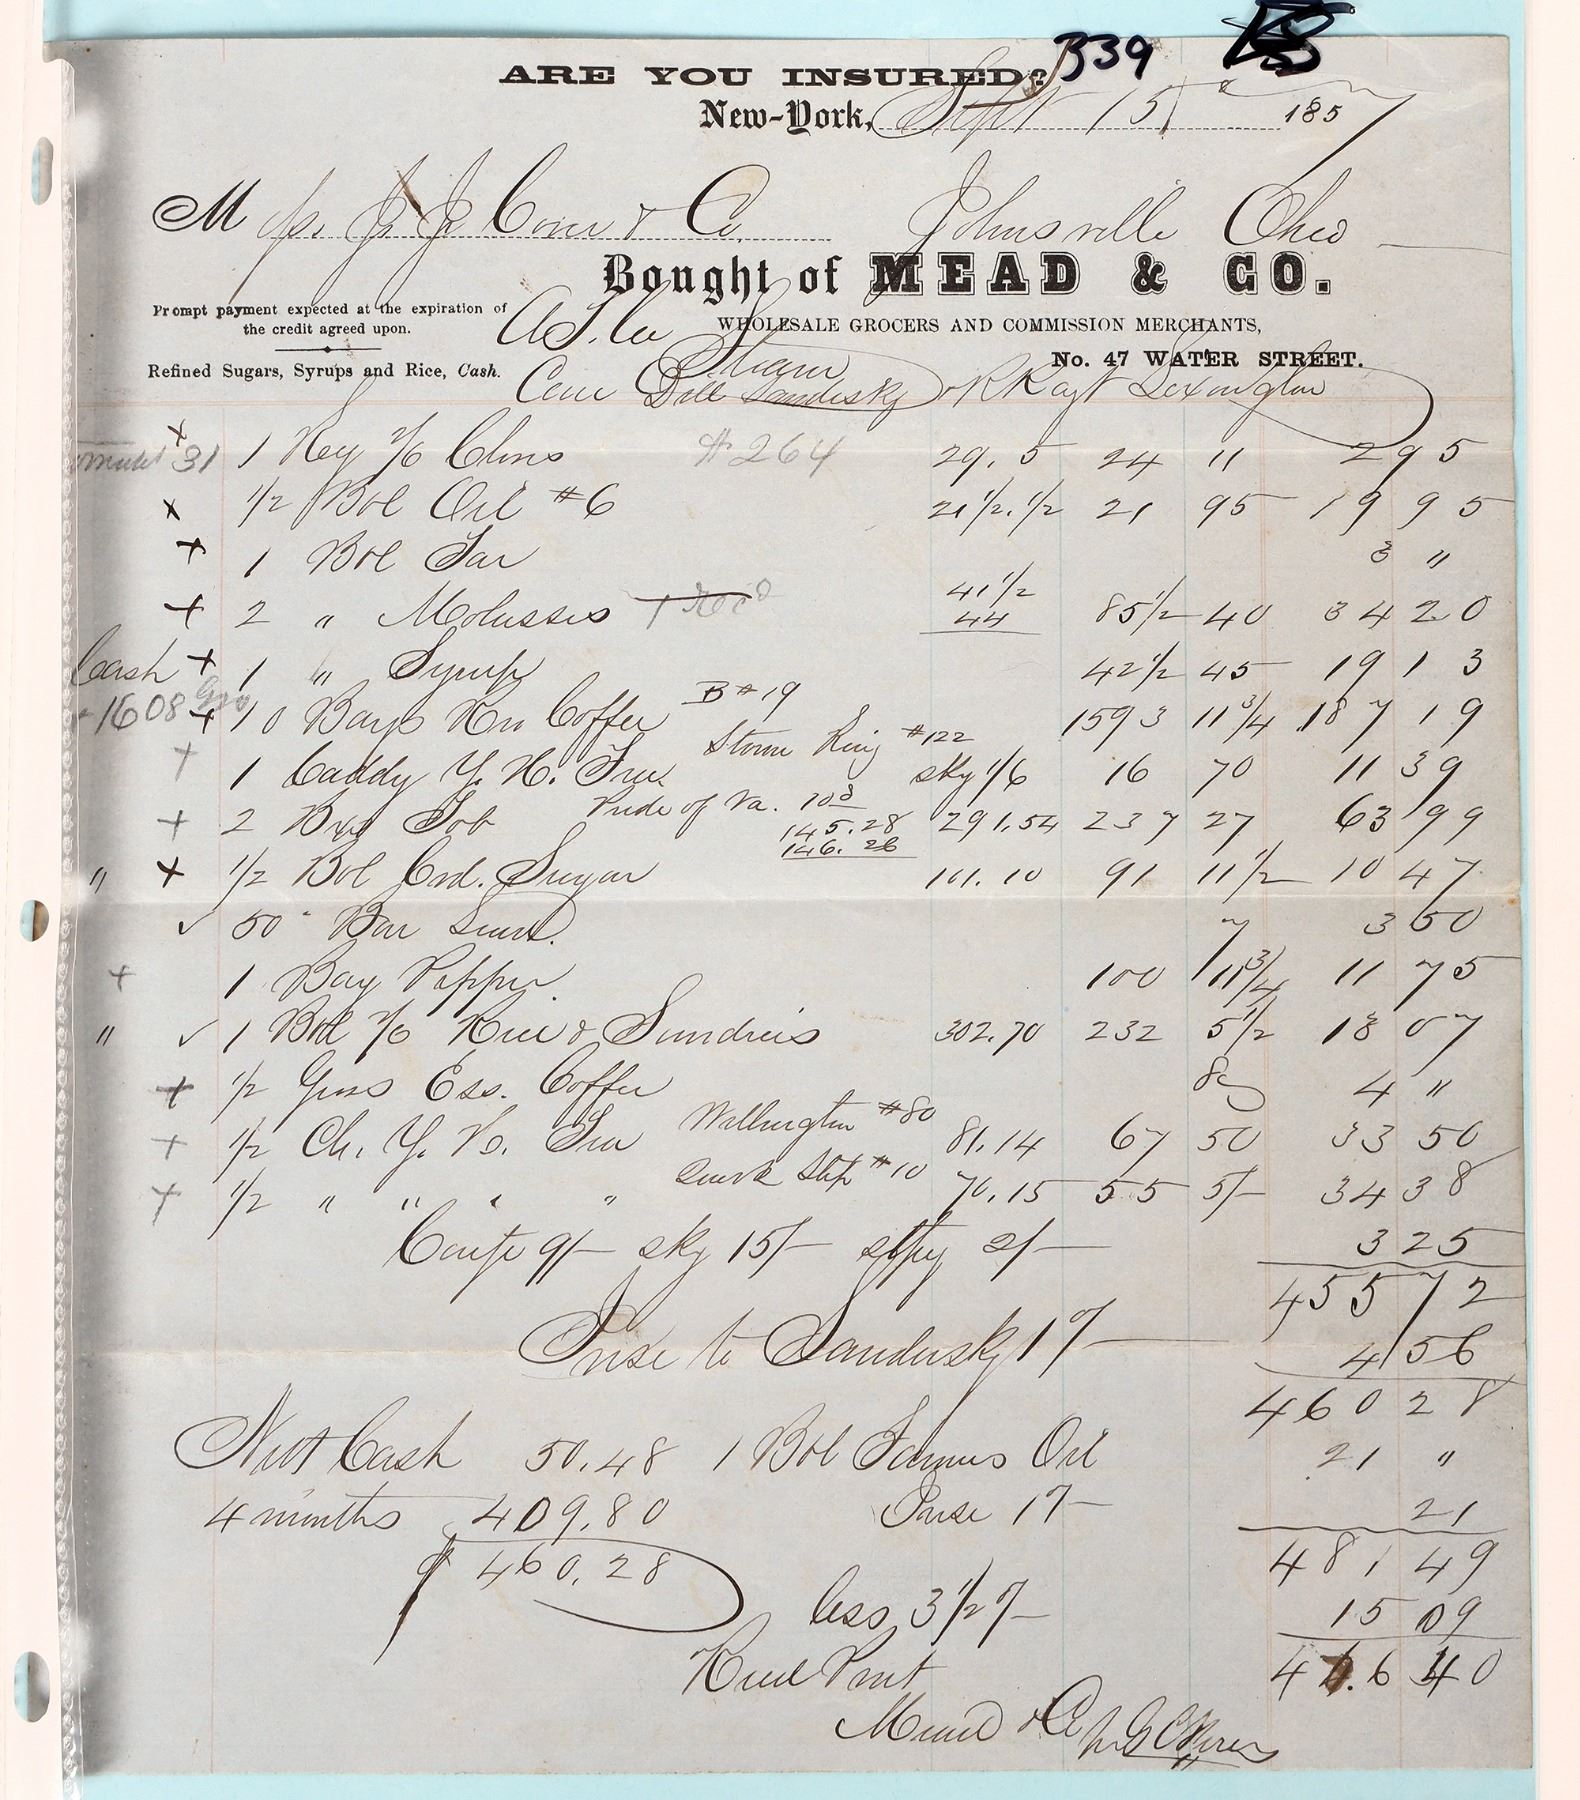 B39
ARE YOU INSURED?
New-York, Sept 15 1857
M J. J. Cover & Co. Johnsville Ohio
Bought of MEAD & CO.
Prompt payment expected at the expiration of
the credit agreed upon.
WHOLESALE GROCERS AND COMMISSION MERCHANTS,
No. 47 WATER STREET.
Refined Sugars, Syrups and Rice, Cash.
Steam
Care Sandusky Lexington
x 31 1 Keg Clovs #264 29. 5 24 11 2 95
x 1/2 Bbl Oil #6 21 1/2. 1/2 21 95 19 95
x 1 Bbl Tar 3 "
x 2 " Molasses 41 1/2 44 85 1/2 40 34 20
Cash x 1 " Syrup 42 1/2 45 19 13
1608 x 10 Bags Rio Coffee B #19 1593 11 3/4 187 19
x 1 Caddy Y. H. Tea Storm King #122 sky 1/6 16 70 11 39
x 2 Bxs Tob Pride of Va. 108 145.28 146.26 291.54 237 27 63 99
" x 1/2 Bbl Crd. Sugar 101. 10 91 11 1/2 10 47
✓ 50 Bar 7 3 50
x 1 Bag Pepper 100 11 3/4 11 75
" ✓ 1 Bbl Rice & Sundries 302.70 232 5 1/2 13 07
x 1/2 Gross Ess. Coffee 8 4 "
x 1/2 Ch. Y. H. Tea Wellington #80 81.14 67 50 33 50
x 1/2 " " " " #10 70.15 55 5/- 34 38
Cartg 9/- sky 15/- 2/- 3 25
455 72
Inse to Sandusky 1% 4 56
460 28
Nett Cash 50.48 1 Bbl Tanners Oil 21 "
4 months 409.80 Inse 1% 21
$ 460.28 481 49
less 3 1/2 % 15 09
Recd Pmt 46.6 40
Mead & Co